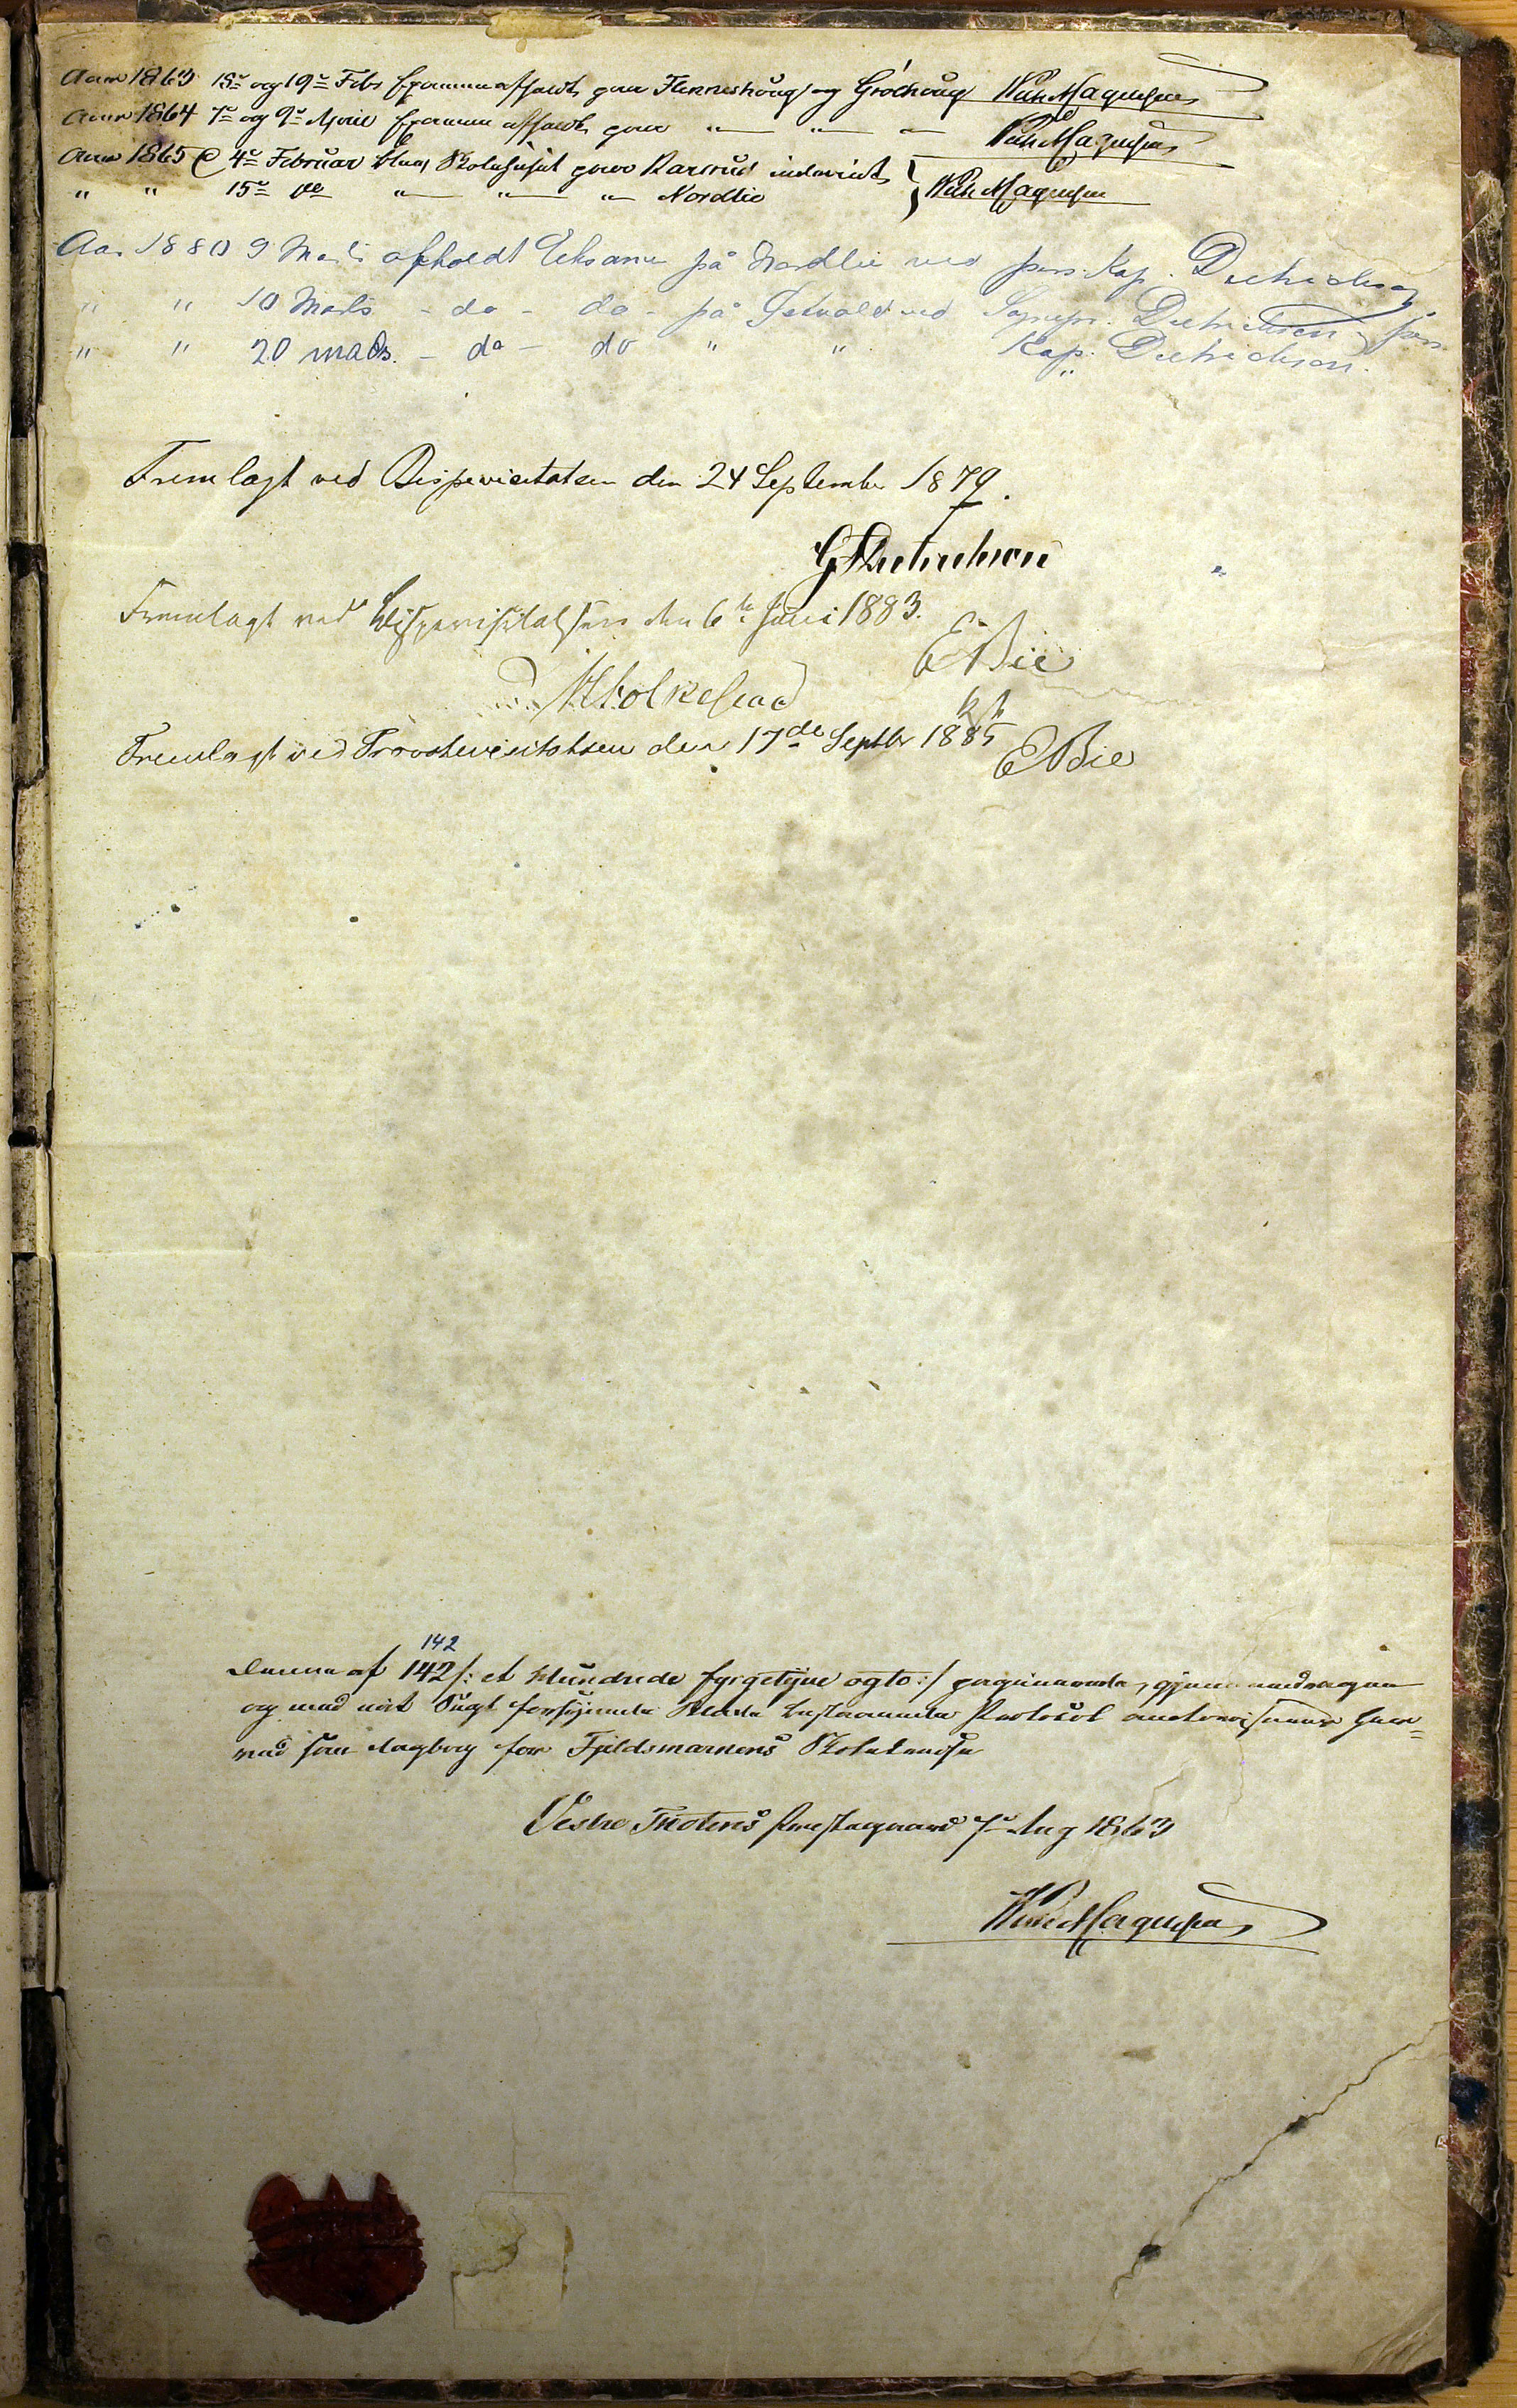 Anno 1863 18de og 19de Febr Examen afholdt paa Flenneshoug og Grøthoug
Anno 1864 7de og 9de April Examen afholdt paa " " "
Anno 1865 4de Februar blev Skolehuset paa Karsrud indviet
" " 15de do " " " Nordlie
Aar 1880 9 Marts afholdt Eksamen på Nordlie ved pers. Kap. Dietrichson
" " 10 Marts - do - do - på ved Sognepr. Dietrichson pers.
" " 20 marts. - do - do " " Kap. Dietrichson.
Fremlagt ved Bispevisitatsen den 24 September 1879.
G Dietrichson
Fremlagt ved Bispevisitatsen den 6te Juni 1883.
E Bie
Fremlagt ved Provstevisitatsen den 17de Septbr 1885
E Bie
142
Denne af 142 /: et Hundrede fyrgetyve og to :/ paginerede, gjennemdragne
og med mit Segl forsynede Blade bestaaende Protokol autoriseres her-
ved som Dagbog for Fjeldsmarkens Skolekreds
Vestre Thotens Præstegaard 7de Aug 1863